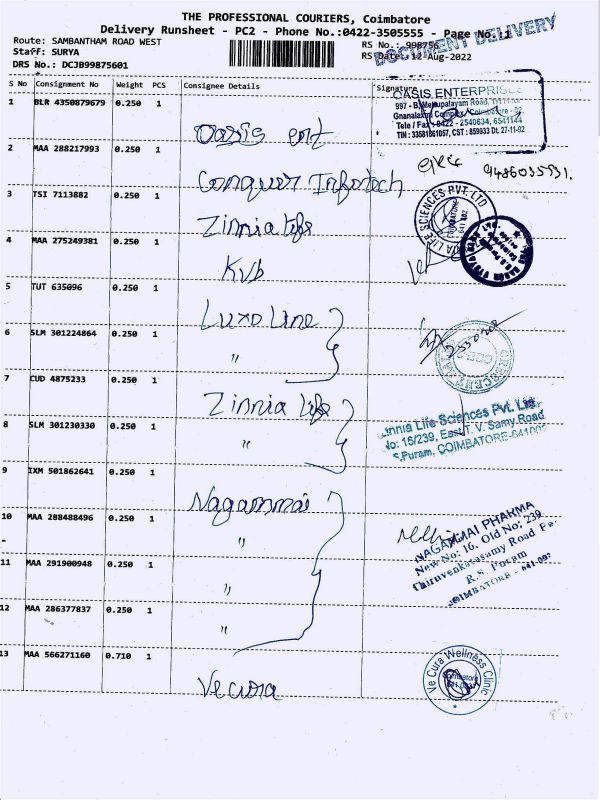 THE PROFESSIONAL COURIERS, Coimbatore
Delivery Runsheet - PC2 - Phone No.:0422-3505555 - Page No.:1
DOCUMENT DELIVERY
Route: SAMBANTHAM ROAD WEST
RS No.: 998756
Staff: SURYA
RS Date: 12-Aug-2022
DRS No.: DCJB99875601
S No Consignment No Weight PCS Consignee Details Signature
1 BLR 4350879679 0.250 1 Oasis ent
OASIS ENTERPRISE
997 - B, Mettupalayam Road,
Gnanalaxmi Complex, Coimbatore - 02
Tele / Fax : 0422 - 2540634, 6541144
TIN : 33581861057, CST : 859933 Dt. 27-11-92
2 MAA 288217993 0.250 1 Conquer Infotech
9486035931.
3 TSI 7113882 0.250 1 Zinnia life
ZINNIA LIFE SCIENCES PVT. LTD
COIMBATORE
4 MAA 275249381 0.250 1 KVB
5 TUT 635096 0.250 1 Luxo Line
6 SLM 301224864 0.250 1 "
CBE
7 CUD 4875233 0.250 1 Zinnia life
8 SLM 301230330 0.250 1 "
Zinnia Life Sciences Pvt. Ltd.
No: 15/239, East T. V. Samy Road
R.S.Puram, COIMBATORE-641002
9 IXM 501862641 0.250 1 Nagammai
10 MAA 288488496 0.250 1 "
11 MAA 291900948 0.250 1 "
12 MAA 286377837 0.250 1 "
NAGAMMAI PHARMA
New No: 16, Old No: 239
Thiruvenkatasamy Road Ea
R.S. Puram
COIMBATORE - 641 002
13 MAA 566271160 0.710 1 Ve cura
Ve Cura Wellness Clinic
Coimbatore